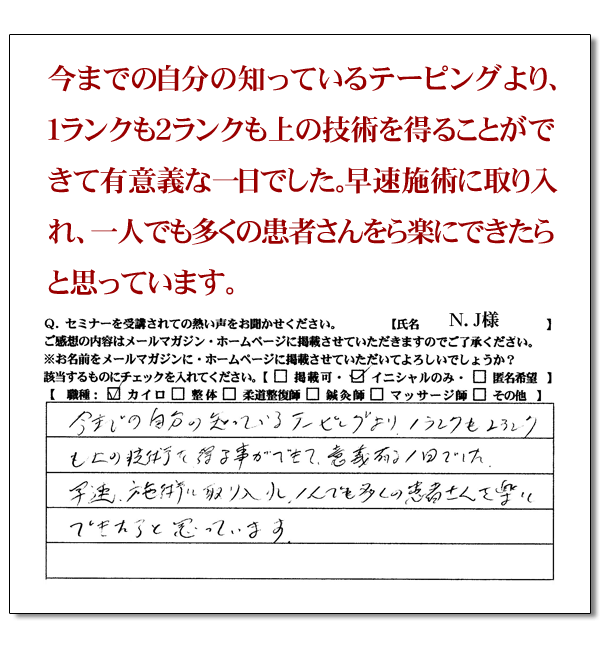 今までの自分の知っているテーピングより、
1ランクも2ランクも上の技術を得ることがで
きて有意義な一日でした。早速施術に取り入
れ、一人でも多くの患者さんをら楽にできたら
と思っています。
Q. セミナーを受講されての熱い声をお聞かせください。 【氏名 N.J様 】
ご感想の内容はメールマガジン・ホームページに掲載させていただきますのでご了承ください。
※お名前をメールマガジンに・ホームページに掲載させていただいてよろしいでしょうか？
該当するものにチェックを入れてください。【 □ 掲載可・ ☑ イニシャルのみ・ □ 匿名希望 】
【 職種： ☑ カイロ □ 整体 □ 柔道整復師 □ 鍼灸師 □ マッサージ師 □ その他 】
今までの自分の知っているテーピングより、1ランクも2ランク
も上の技術を得る事ができて、意義有る1日でした。
早速、施術に取り入れ、1人でも多くの患者さんを楽に
できたらと思っています。